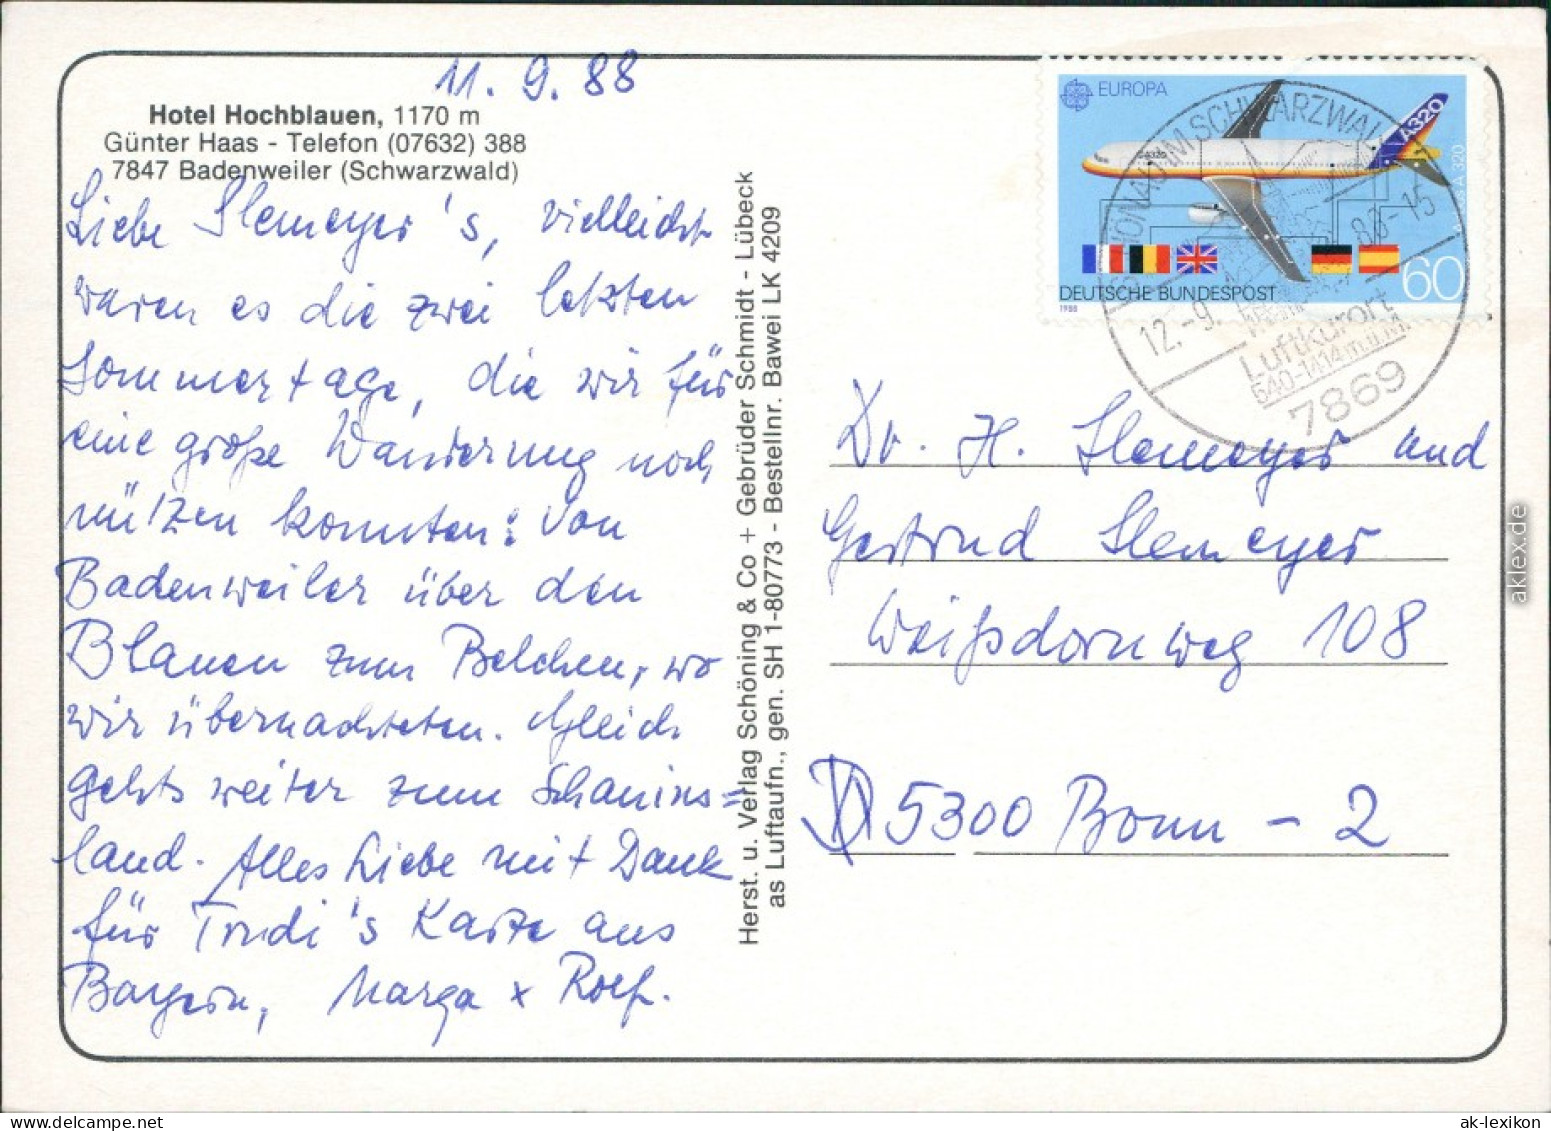 11. 9. 88
Hotel Hochblauen, 1170 m
Günter Haas - Telefon (07632) 388
7847 Badenweiler (Schwarzwald)
Liebe Slemeyer's, vielleicht
waren es die zwei letzten
Sommertage, die wir für
eine große Wanderung noch
nützen konnten: Von
Badenweiler über den
Blauen zum Belchen, wo
wir übernachteten. Gleich
gehts weiter zum Schauins=
land. Alles Liebe mit Dank
für Trudi's Karte aus
Bayern, Marga + Rolf.
Herst. u. Verlag Schöning & Co + Gebrüder Schmidt - Lübeck
as Luftaufn., gen. SH 1-80773 - Bestellnr. Bawei LK 4209
EUROPA
A320
A 320
DEUTSCHE BUNDESPOST
60
1988
SCHÖNAU IM SCHWARZWALD
12.-9. 88-15
Luftkurort
540-1414 m.ü.M.
7869
Dr. H. Slemeyer und
Gertrud Slemeyer
Weißdornweg 108
5300 Bonn - 2
aklex.de
ak-lexikon